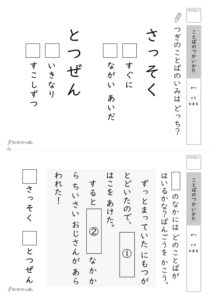 ことばのつかいかた
つぎのことばのいみはどっち？
さっそく
すぐに
ながい あいだ
とつぜん
いきなり
すこしずつ
ことばのつかいかた
のなかには どのことばが
はいるかな？ばんごうを かこう。
ずっと まっていた にもつが
とどいたので、 ①
はこを あけた。
すると ② なかか
ら ちいさい おじさんが あら
われた！
さっそく とつぜん